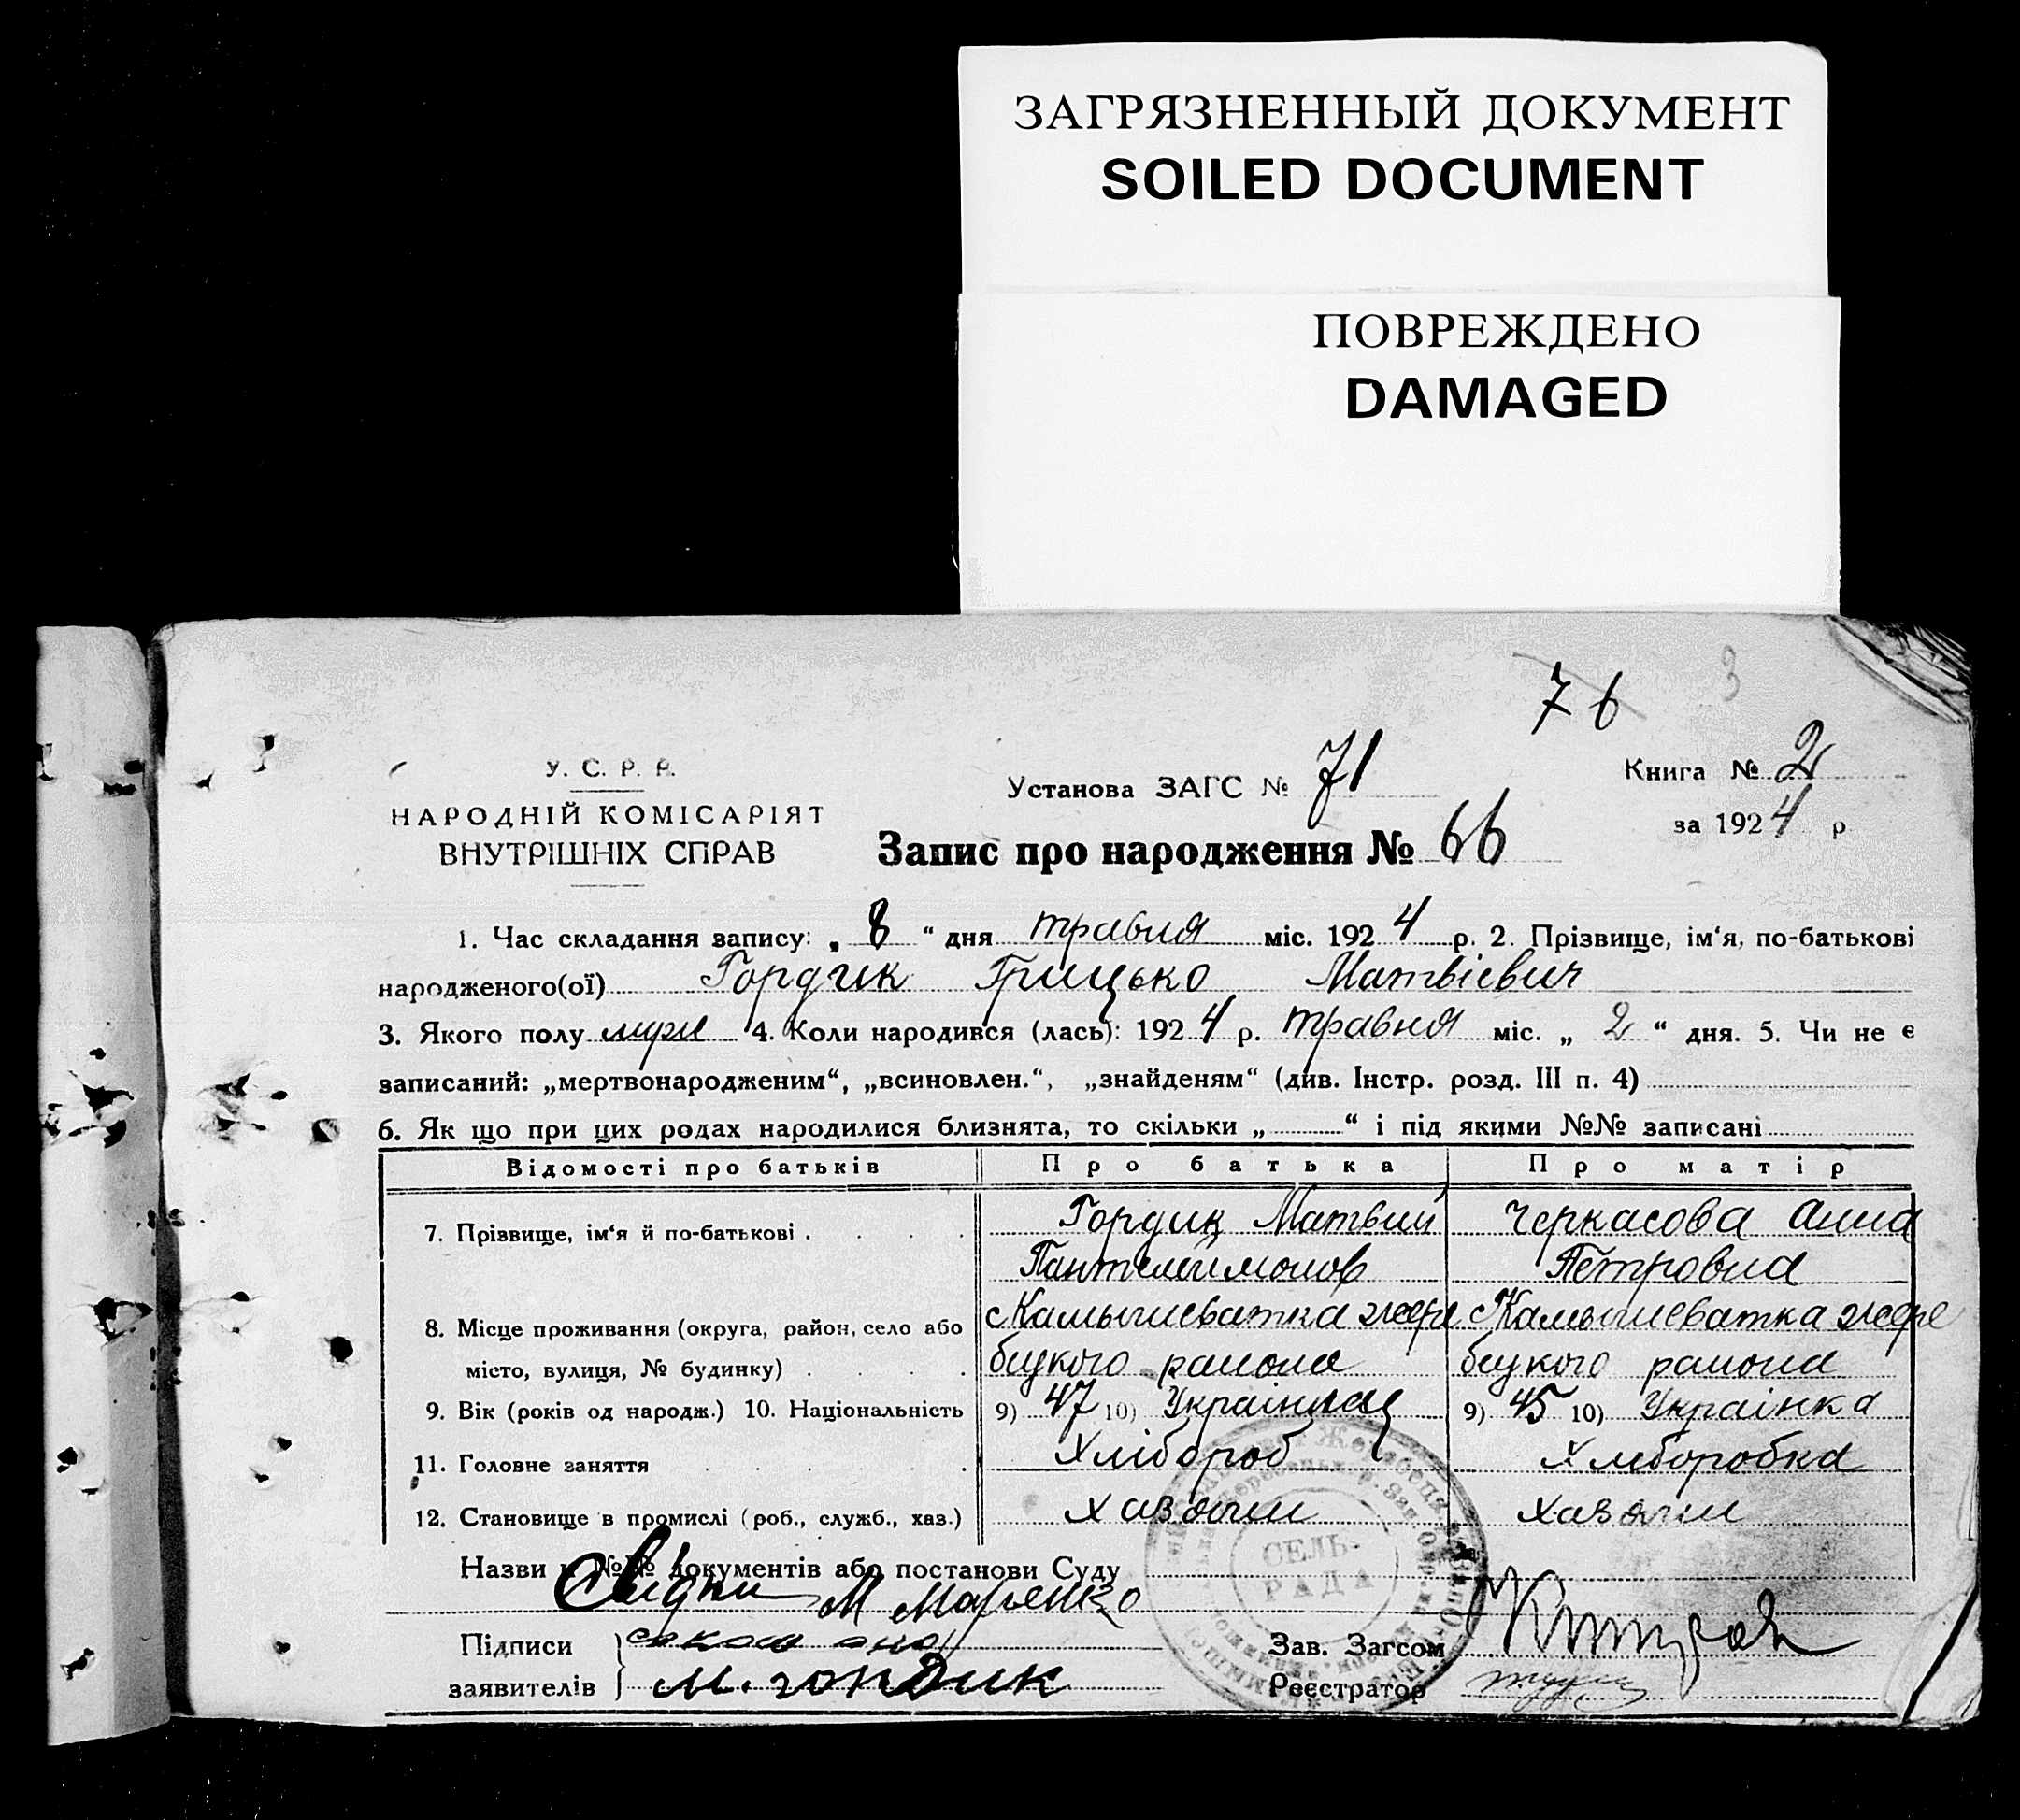 ЗАГРЯЗНЕННЫЙ ДОКУМЕНТ
SOILED DOCUMENT
ПОВРЕЖДЕНО
DAMAGED
3
76
У. С. Р. Р.
НАРОДНІЙ КОМІСАРІЯТ
ВНУТРІШНІХ СПРАВ
Установа ЗАГС № 71
Книга № 2
за 1924 р
Запис про народження № 66
1. Час складання запису: „ 8 “ дня травня міс. 1924 р. 2. Прізвище, ім‘я, по-батькові
народженого(ої) Гордик Грицько Матвієвич
3. Якого полу муж 4. Коли народився (лась): 1924 р. травня міс. „ 2 “ дня. 5. Чи не є
записаний: „мертвонародженим“, „всиновлен.“, „знайденям“ (див. Інстр. розд. III п. 4)
6. Як що при цих родах народилися близнята, то скільки „ “ і під якими №№ записані
Відомості про батьків Про батька Про матір
7. Прізвище, ім‘я й по-батькові . Гордик Матвий Черкасова Анна
Пантилеймонов Петровна
8. Місце проживання (округа, район, село або с Камышеватка жере с Камышеватка жере
місто, вулиця, № будинку) . бецкого района бецкого района
9. Вік (років од народж.) 10. Національність 9) 47 10) Українец 9) 45 10) Українка
11. Головне заняття Хлібороб Хліборобка
12. Становище в промислі (роб., служб., хаз.) хазяин хазяин
Назви и №№ документів або постанови Суду
Свідки М Марченко
Підписи
заявителів м. гордик
Зав. Загсом
Реєстратор
СЕЛЬ-
РАДА